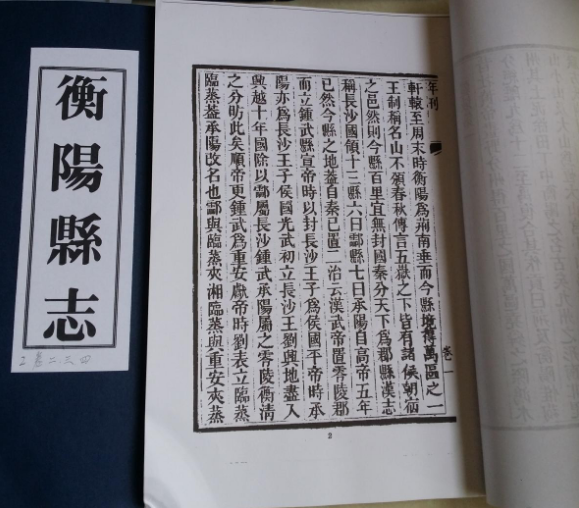 衡陽縣志
卷二.三.四
年刊
軒轅至周末時衡陽爲荆南垂而今縣境得萬區之一
王制稱名山不頒春秋傳言五嶽之下皆有諸侯朝宿
之邑然則今縣百里宜無封國秦分天下爲郡縣漢志
稱長沙國領十三縣六日酃縣七日承陽自高帝五年
已然今縣之地葢自秦已置二治云漢武帝置零陵郡
而立鍾武縣宣帝時以封長沙王子爲侯國平帝時承
陽亦爲長沙王子侯國光武初立長沙王劉興地盡入
興越十年國除以酃屬長沙鍾武承陽屬之零陵衡清
之分昉此矣順帝更鍾武爲重安獻帝時劉表立臨蒸
臨蒸葢承陽改名也酃與臨蒸夾湘臨蒸與重安夾蒸
卷一
2